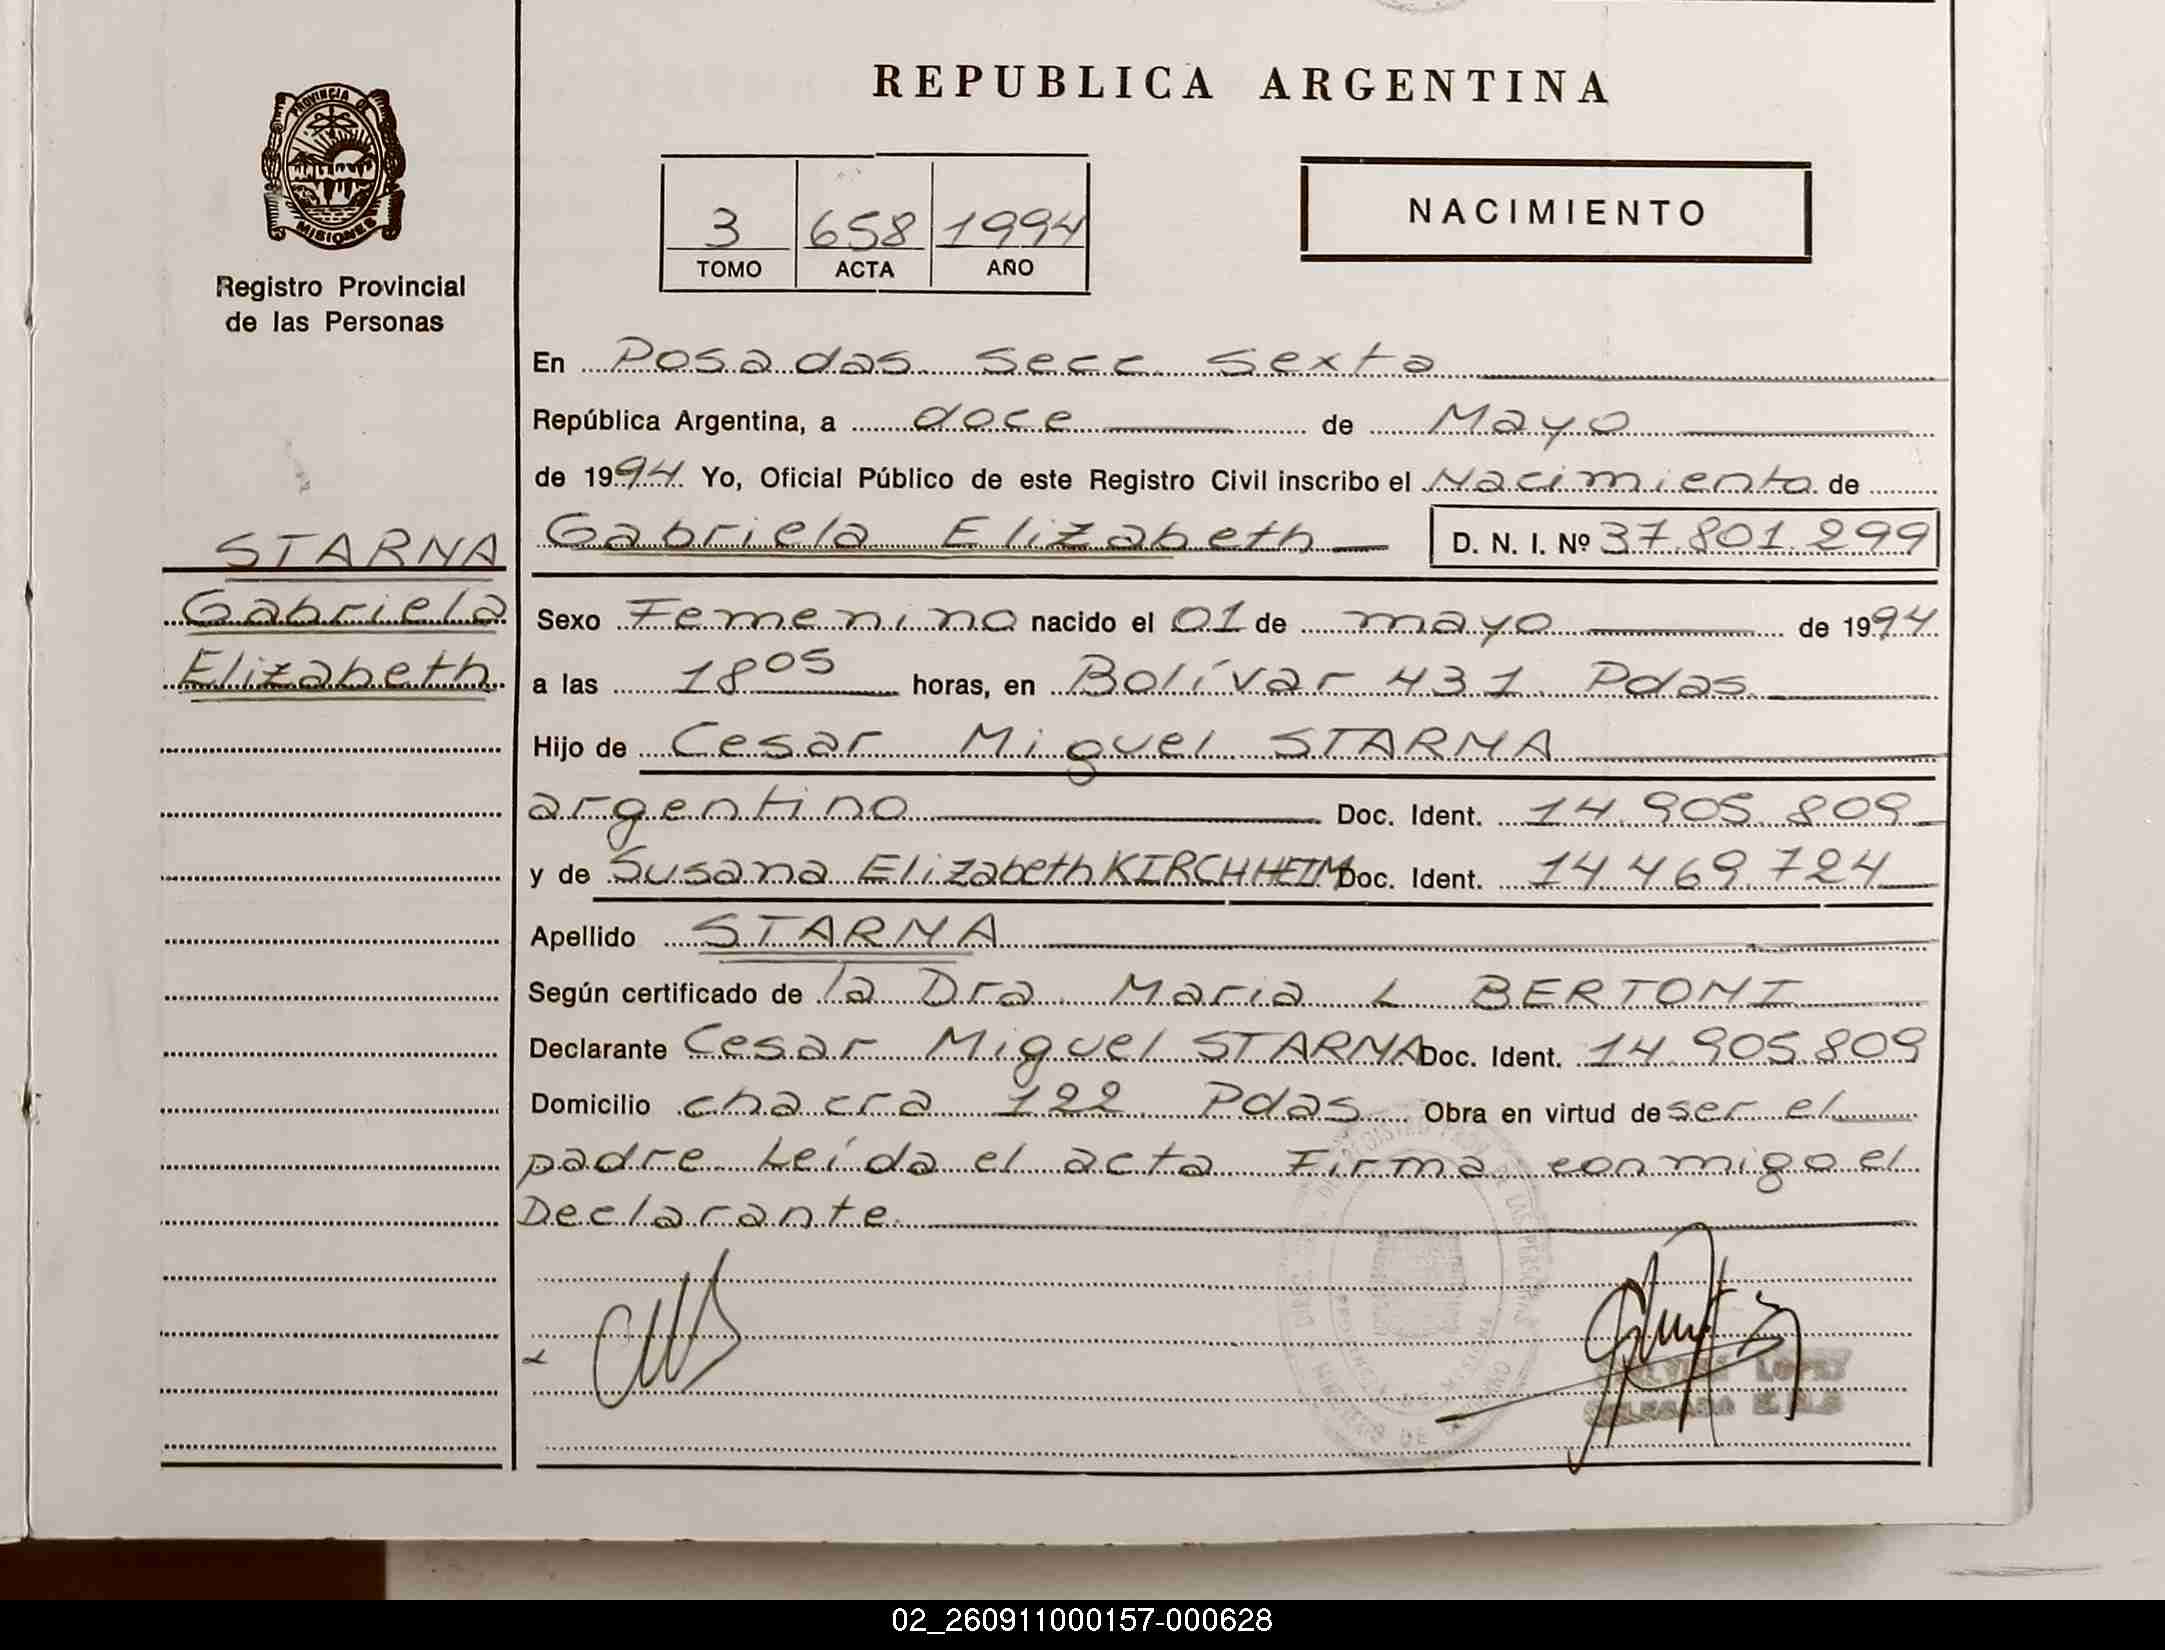 REPUBLICA ARGENTINA
PROVINCIA DE
MISIONES
Registro Provincial
de las Personas
3 658 1994
TOMO ACTA AÑO
NACIMIENTO
En Posadas Secc. Sexta
República Argentina, a doce de Mayo
de 1994 Yo, Oficial Público de este Registro Civil inscribo el Nacimiento de
STARNA
Gabriela Elizabeth D. N. I. Nº 37.801.299
Gabriela
Sexo Femenino nacido el 01 de mayo de 1994
Elizabeth
a las 18 05 horas, en Bolívar 431 Pdas.
Hijo de Cesar Miguel STARNA
argentino Doc. Ident. 14.905.809
y de Susana Elizabeth KIRCHHEIM Doc. Ident. 14.469.724
Apellido STARNA
Según certificado de la Dra. Maria L BERTONI
Declarante Cesar Miguel STARNA Doc. Ident. 14.905.809
Domicilio chacra 122 Pdas Obra en virtud de ser el
padre Leída el acta Firma conmigo el
Declarante.
LOPEZ
02_260911000157-000628